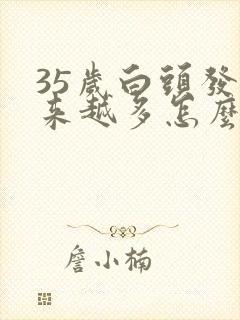 35歲白頭發
來越多怎麼
詹小楠